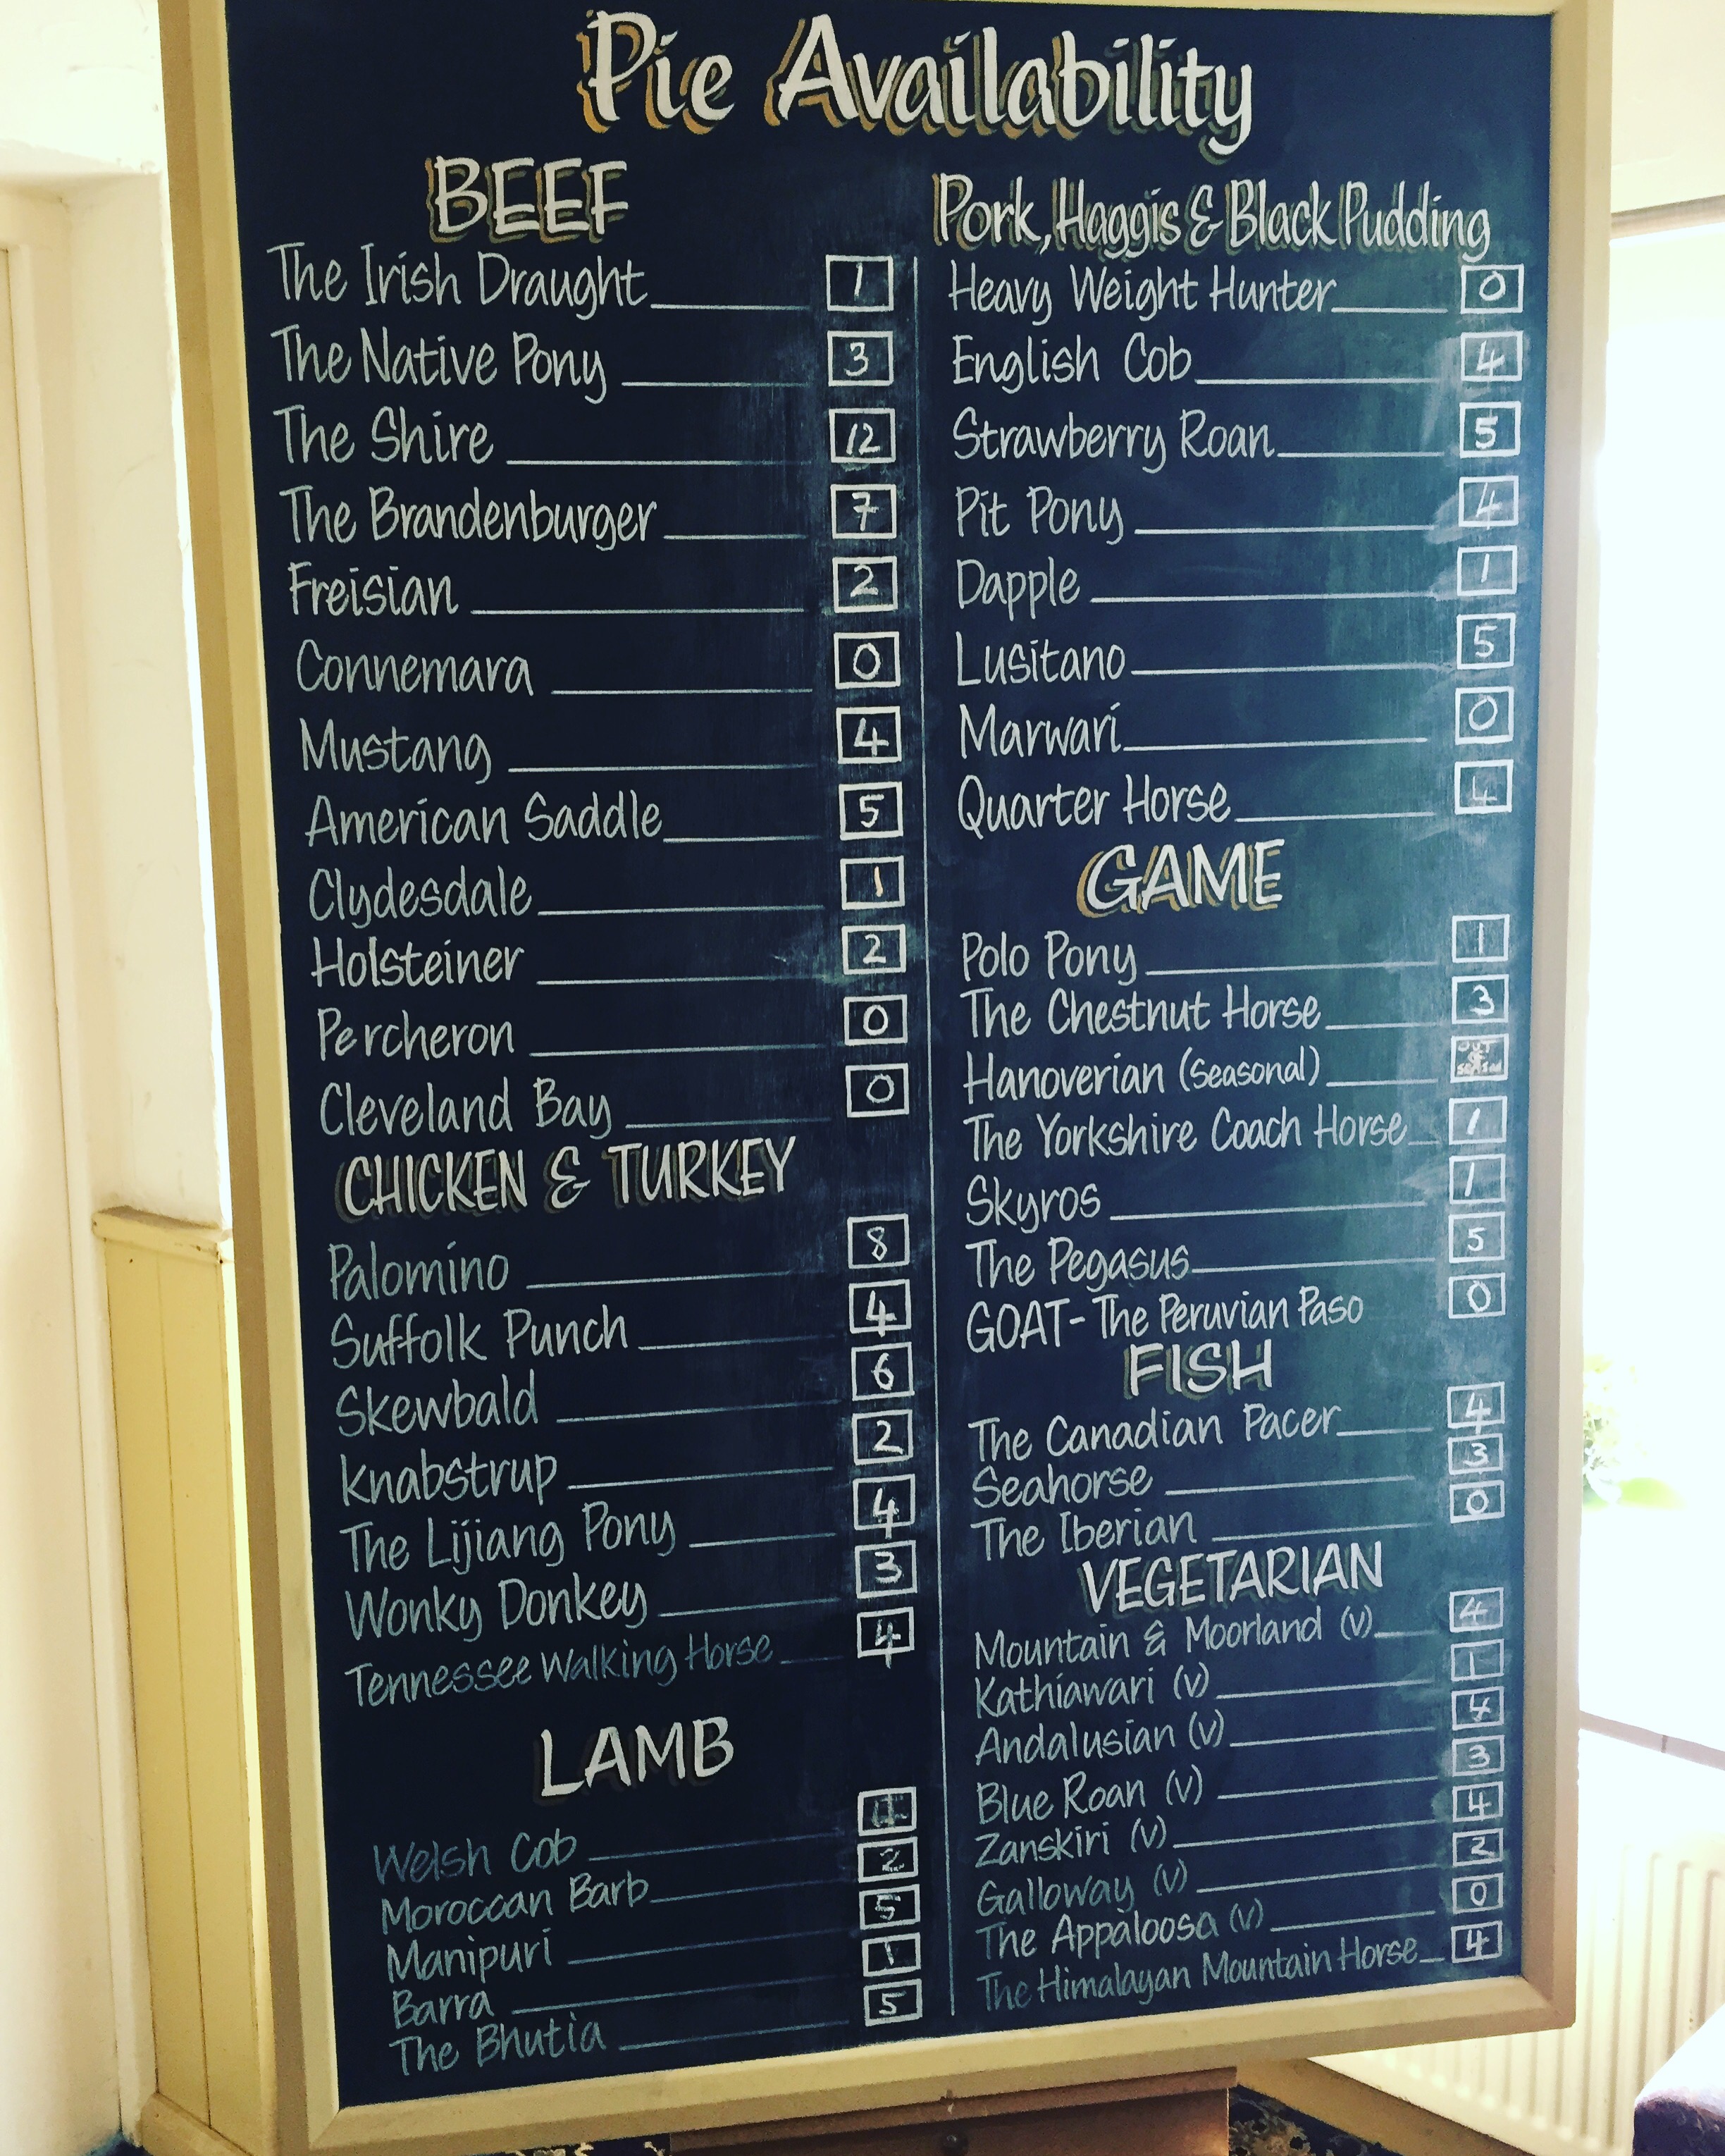 Pie Availability
BEEF
The Irish Draught 1
The Native Pony 3
The Shire 12
The Brandenburger 7
Freisian 2
Connemara 0
Mustang 4
American Saddle 5
Clydesdale 1
Holsteiner 2
Percheron 0
Cleveland Bay 0
CHICKEN & TURKEY
Palomino 8
Suffolk Punch 4
Skewbald 6
Knabstrup 2
The Lijiang Pony 4
Wonky Donkey 3
Tennessee Walking Horse 4
LAMB
Welsh Cob
Moroccan Barb 2
Manipuri 5
Barra 1
The Bhutia 5
Pork, Haggis & Black Pudding
Heavy Weight Hunter 0
English Cob 4
Strawberry Roan 5
Pit Pony 4
Dapple 1
Lusitano 5
Marwari 0
Quarter Horse
GAME
Polo Pony 1
The Chestnut Horse 3
Hanoverian (Seasonal)
The Yorkshire Coach Horse 1
Skyros 1
The Pegasus 5
GOAT - The Peruvian Paso 0
FISH
The Canadian Pacer 4
Seahorse 3
The Iberian 0
VEGETARIAN
Mountain & Moorland (v) 4
Kathiawari (v) 1
Andalusian (v) 4
Blue Roan (v) 3
Zanskiri (v) 4
Galloway (v) 2
The Appaloosa (v) 0
The Himalayan Mountain Horse 4